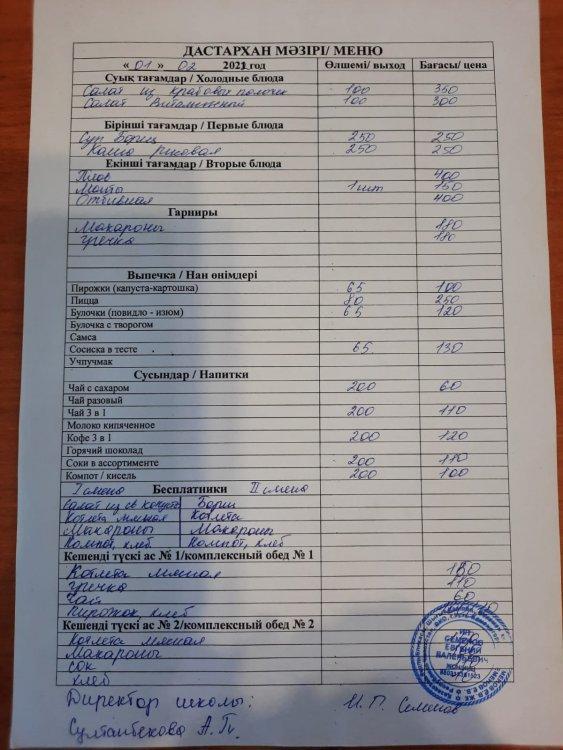 ДАСТАРХАН МӘЗІРІ/ МЕНЮ
« 01 » 02 2021 год Өлшемі/ выход Бағасы/ цена
Суық тағамдар / Холодные блюда
Салат из крабовых палочек 100 350
Салат Витаминный 100 300
Бірінші тағамдар / Первые блюда
Суп Борщ 250 250
Каша рисовая 250 250
Екінші тағамдар / Вторые блюда
Плов 400
Манты 1 шт 150
Отбивная 400
Гарниры
Макароны 180
Гречка 180
Выпечка / Нан өнімдері
Пирожки (капуста-картошка) 65 100
Пицца 80 250
Булочки (повидло - изюм) 65 120
Булочка с творогом
Самса
Сосиска в тесте 65 130
Учпучмак
Сусындар / Напитки
Чай с сахаром 200 60
Чай разовый
Чай 3 в 1 200 110
Молоко кипяченное
Кофе 3 в 1 200 120
Горячий шоколад
Соки в ассортименте 200 110
Компот / кисель 200 100
I смена Бесплатники II смена
Салат из св капусты Борщ
Котлета мясная Котлета
Макароны Макароны
Компот, хлеб Компот, хлеб
Кешенді түскі ас № 1/комплексный обед № 1
Котлета мясная 180
Гречка 110
Чай 60
Пирожок хлеб
Кешенді түскі ас № 2/комплексный обед № 2
Котлета мясная
Макароны
сок
хлеб
СЕМЕНОВ
ЕВГЕНИЙ
ВАЛЕРЬЕВИЧ
Директор школы: И. П. Семенов
Султанбекова А. Т.